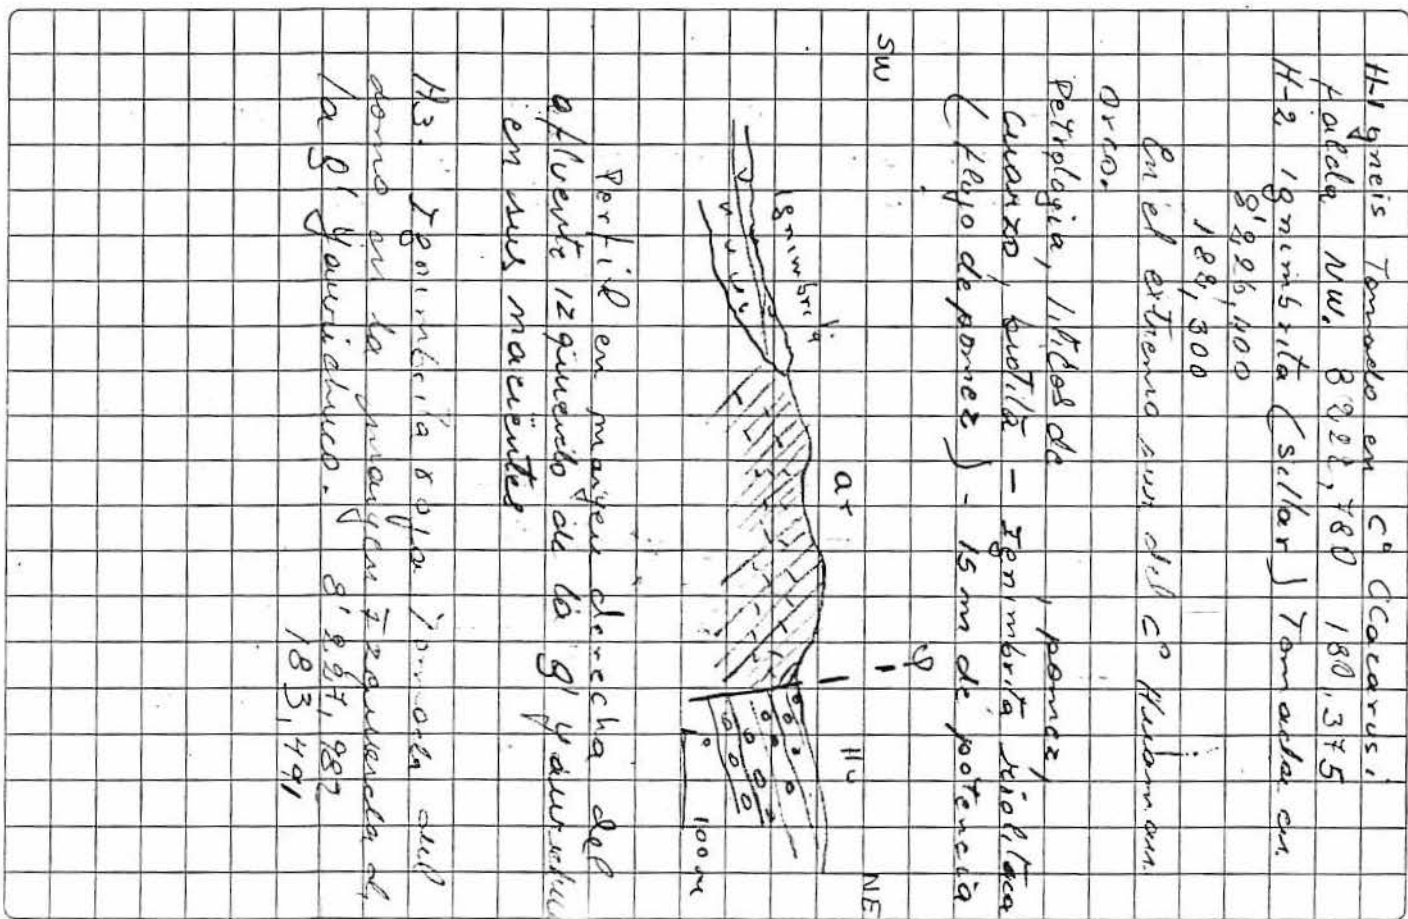 H-1 gneis Tomado en C° CCacarusi
falda NW. 8222,780 180,375
H-2 Ignimbrita (sillar) Tomada en
8'226,400
188,300
En el extremo sur del C° Huaman
Orcco.
Petrologia, liticos de pomez,
cuarzo, biotita - Ignimbrita riolitica
(flujo de pomez) - 15 m de potencia
SW
NE
Ignimbrita
ar
φ
100 m
Perfil en margen derecha del
afluente izquierdo de la q'
en sus nacientes
H3. Ignimbrita roja Tomada del
domo en la margen Izquierda de
la q' 8'227,982
183,491